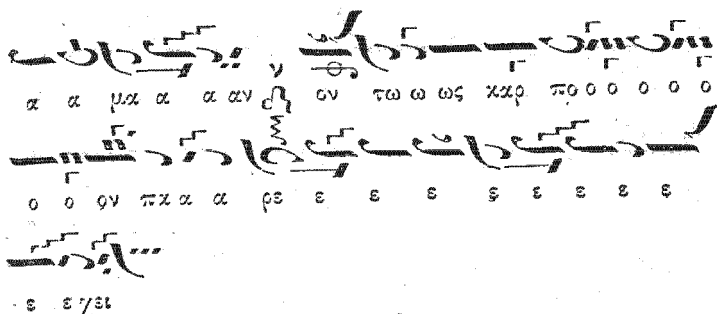 α α μα α α αν ν ον τω ω ως καρ πο ο ο ο ο ο
ο ο ον πα α α ρε ε ε ε ε ε ε ε ε
ε ε γει